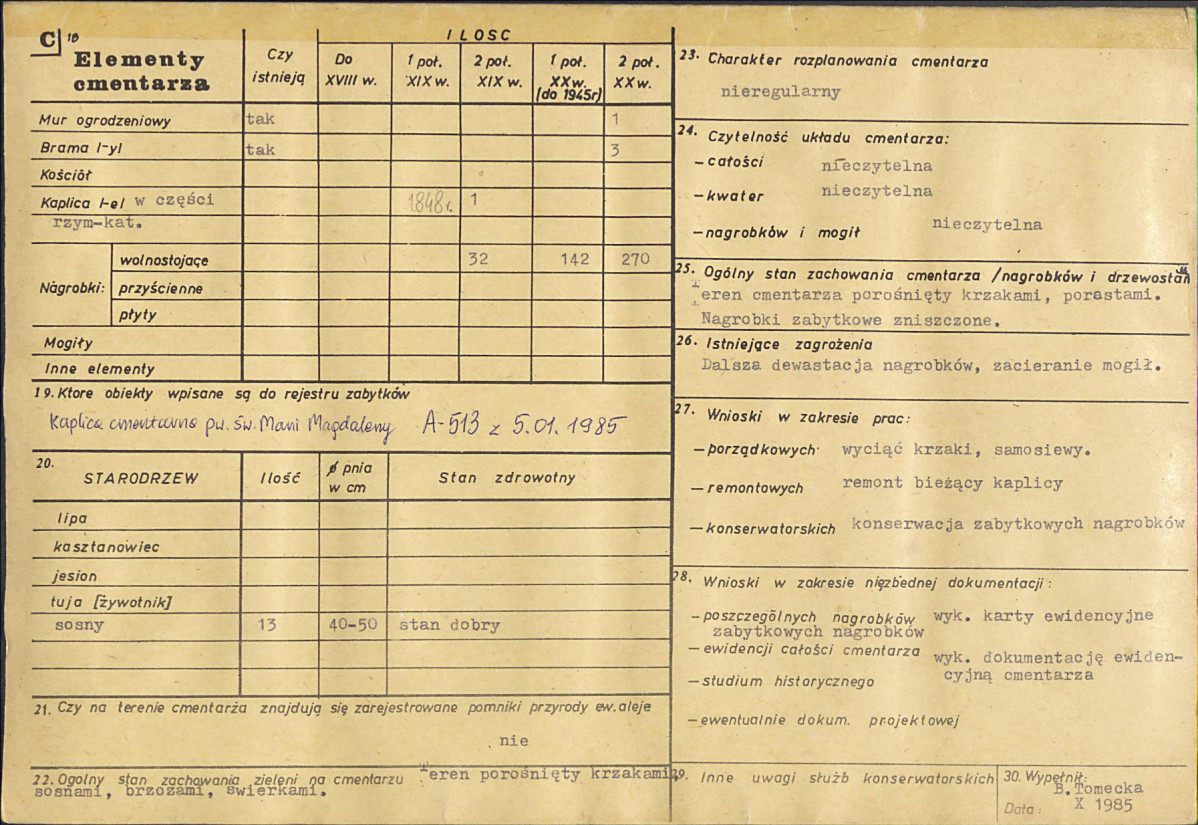 C 18 Elementy cmentarza
Czy istnieją
ILOŚC
Do XVIII w.
1 poł. XIX w.
2 poł. XIX w.
1 poł. XX w. (do 1945r)
2 poł. XX w.
Mur ogrodzeniowy tak 1
Brama I-yl tak 3
Kościół
Kaplica I-el w części 1848r. 1
rzym-kat.
Nagrobki:
wolnostojące 32 142 270
przyścienne
płyty
Mogiły
Inne elementy
19. Ktore obiekty wpisane są do rejestru zabytków
Kaplica cmentarna pw. św. Marii Magdaleny A-513 z 5.01.1985
20. STARODRZEW
Ilość
ø pnia w cm
Stan zdrowotny
lipa
kasztanowiec
jesion
tuja [żywotnik]
sosny 13 40-50 stan dobry
21. Czy na terenie cmentarza znajdują się zarejestrowane pomniki przyrody ew. aleje
nie
22. Ogolny stan zachowania zieleni na cmentarzu Teren porośnięty krzakami,
sosnami, brzozami, świerkami.
23. Charakter rozplanowania cmentarza
nieregularny
24. Czytelność układu cmentarza:
– całości nieczytelna
– kwater nieczytelna
– nagrobków i mogił nieczytelna
25. Ogólny stan zachowania cmentarza /nagrobków i drzewostan
Teren cmentarza porośnięty krzakami, porastami.
Nagrobki zabytkowe zniszczone.
26. Istniejące zagrożenia
Dalsza dewastacja nagrobków, zacieranie mogił.
27. Wnioski w zakresie prac:
– porządkowych wyciąć krzaki, samosiewy.
– remontowych remont bieżący kaplicy
– konserwatorskich konserwacja zabytkowych nagrobków
28. Wnioski w zakresie nięzbędnej dokumentacji:
– poszczególnych nagrobków wyk. karty ewidencyjne
zabytkowych nagrobków
– ewidencji całości cmentarza wyk. dokumentację ewiden-
cyjną cmentarza
– studium historycznego
– ewentualnie dokum. projektowej
29. Inne uwagi służb konserwatorskich
30. Wypełnił:
B. Tomecka
Data: X 1985